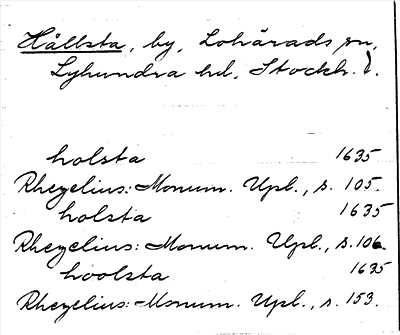 Hållsta, by, Lohärads sn,
Lyhundra hd, Stockh. l.
holsta 1635
Rhezelius: Monum. Upl., s. 105.
holsta 1635
Rhezelius: Monum. Upl., s. 106.
hoolsta 1635
Rhezelius: Monum. Upl., s. 153.